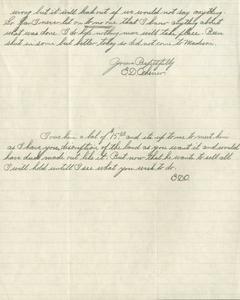 wrong but it will leak out if we would not say anything.
So far I never let on to no one that I know anything about
what was done. I do hope nothing more will take place. Been
sick on some but better today so did not come to Madison.
Yours Respectfully
E.D.
I owe him a bal of $75.00 and its up to me to meet him
as I have your discription of the land as you want it and would
have deed made out like it. But now that he wants to sell all
I will hold until I see what you wish to do.
E.D.O.